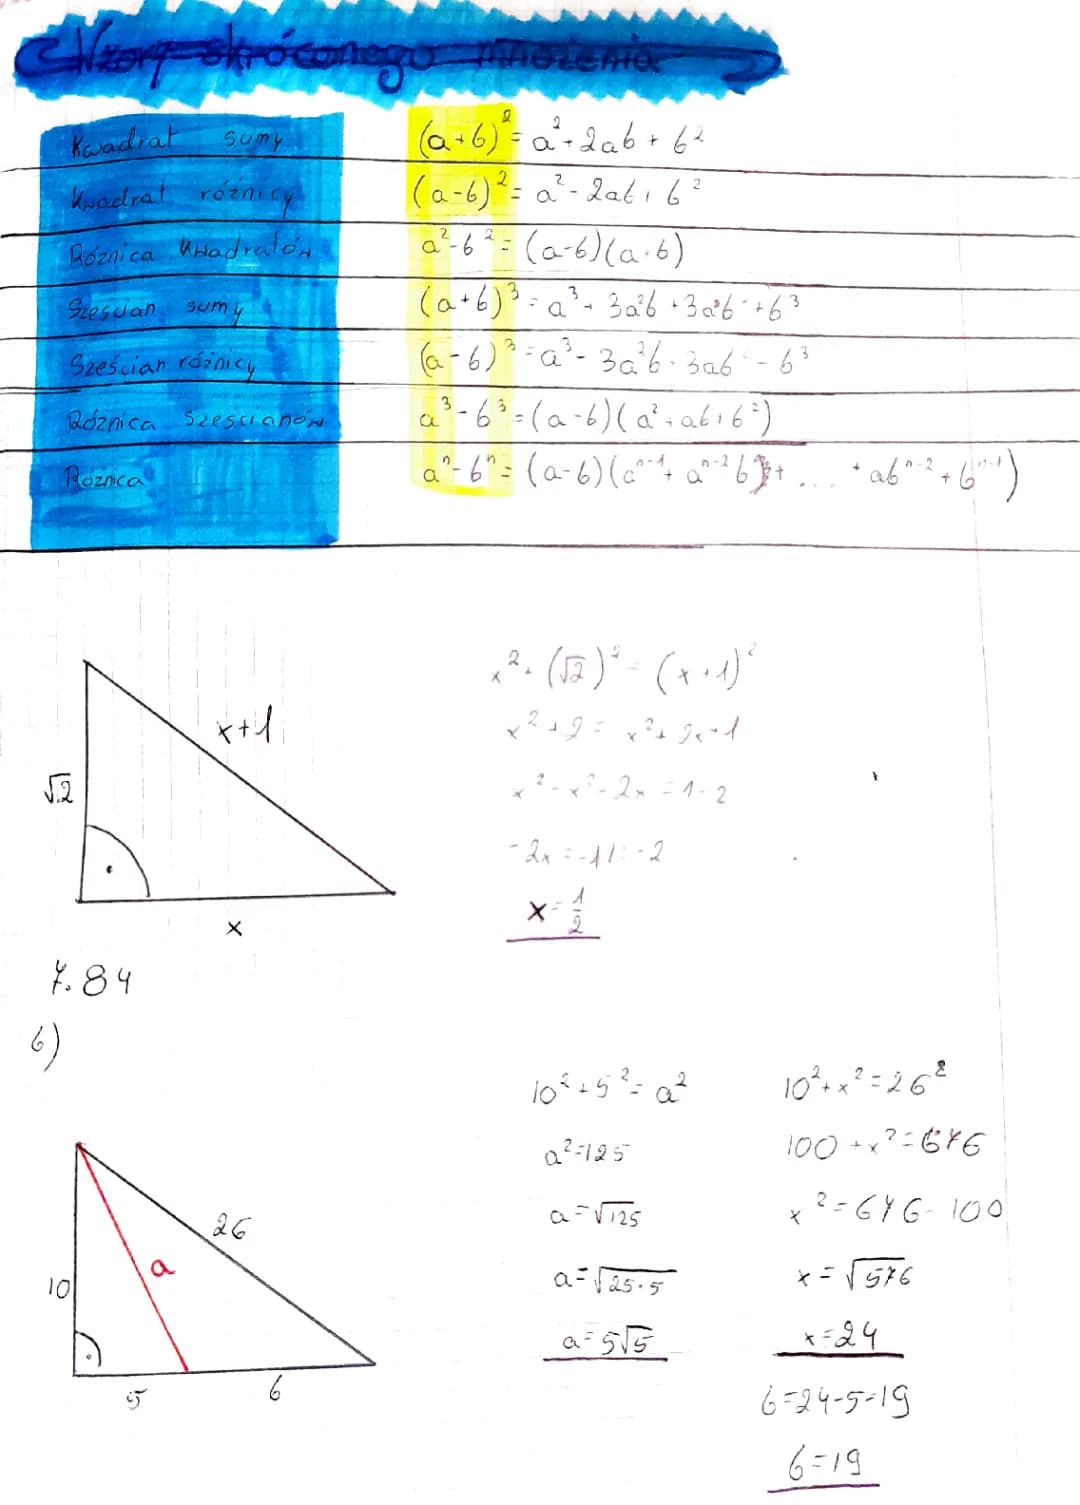 Wzory skróconego mnożenia
Kwadrat sumy (a+b)² = a² + 2ab + b²
Kwadrat różnicy (a-b)² = a² - 2ab + b²
Różnica kwadratów a² - b² = (a-b)(a+b)
Sześcian sumy (a+b)³ = a³ + 3a²b + 3a²b + b³
Sześcian różnicy (a-b)³ = a³ - 3a²b + 3ab² - b³
Różnica sześcianów a³ - b³ = (a-b)(a² + ab + b²)
Różnica aⁿ - bⁿ = (a-b)(aⁿ⁻¹ + aⁿ⁻²b + ... + abⁿ⁻² + bⁿ⁻¹)
x+1
√2
x
x² + (√2)² = (x+1)²
x² + 2 = x² + 2x + 1
x² - x² - 2x = 1 - 2
-2x = -1 /: -2
x = 1/2
7.84
b)
26
a
10
5
b
10² + 5² = a²
a² = 125
a = √125
a = √25·5
a = 5√5
10² + x² = 26²
100 + x² = 676
x² = 676 - 100
x = √576
x = 24
b = 24 - 5 = 19
b = 19